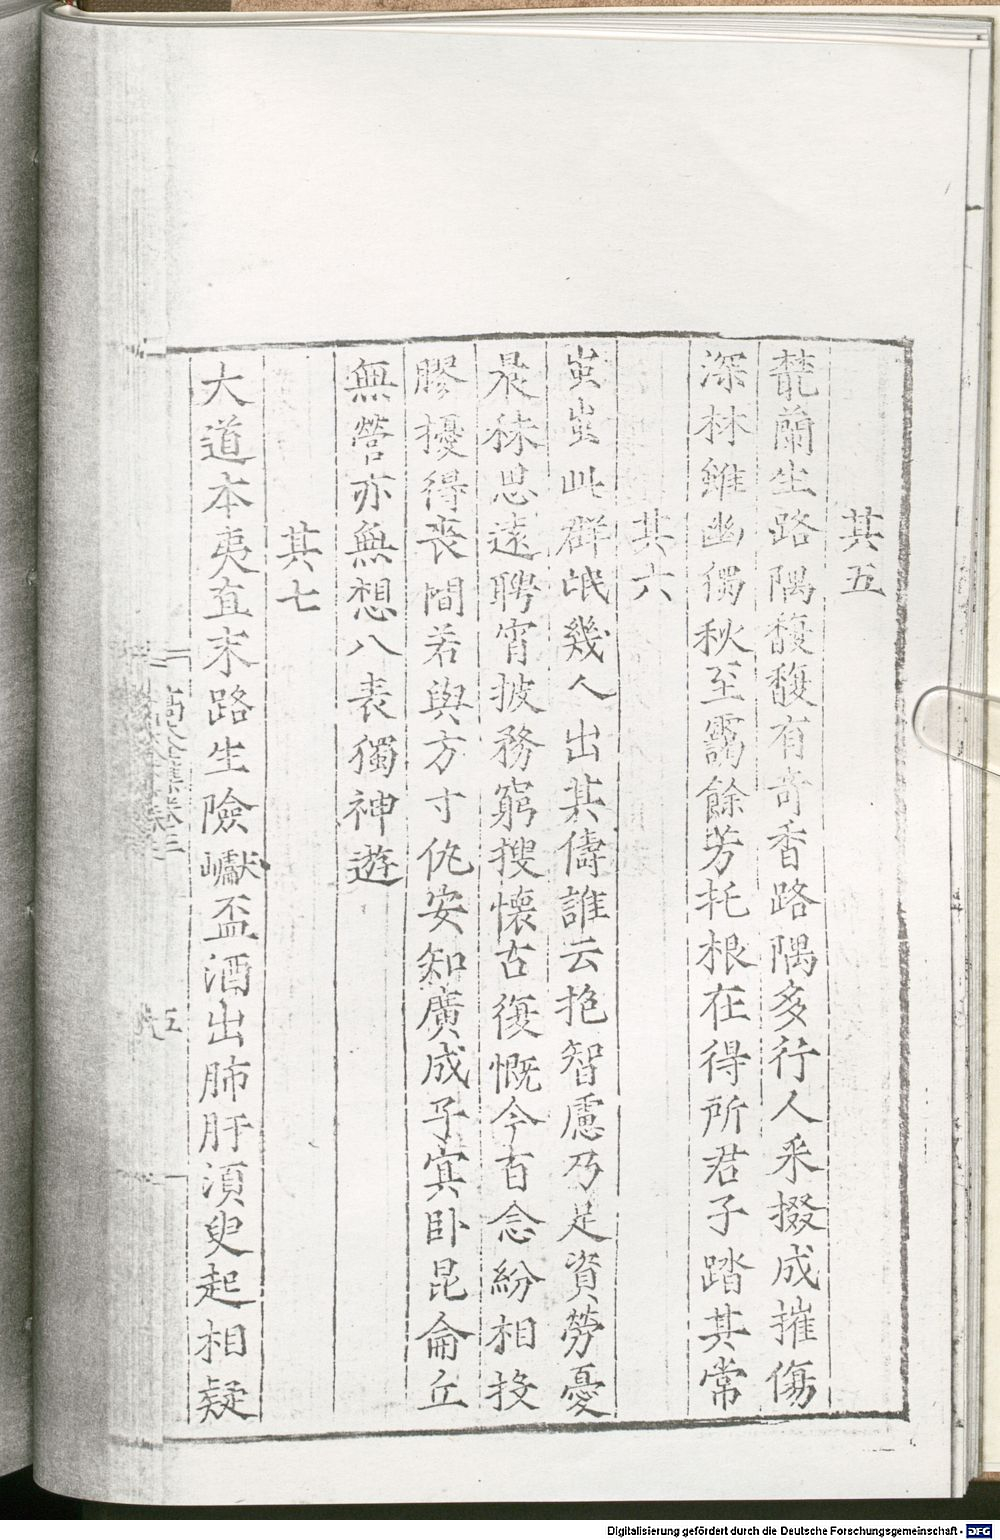 其五
藂蘭生路隅馥馥有奇香路隅多行人采掇成摧傷
深林雖幽獨秋至靄餘芳托根在得所君子踏其常
其六
蚩蚩此群氓幾人出其儔誰云抱智慮乃足資勞憂
晨秣思遠聘宵披務窮搜懷古復慨今百念紛相投
膠擾得喪間若與方寸仇安知廣成子寘卧昆侖丘
無營亦無想八表獨神遊
其七
大道本夷直末路生險巘盃酒出肺肝湏臾起相疑
卷三
五
Digitalisierung gefördert durch die Deutsche Forschungsgemeinschaft - DFG